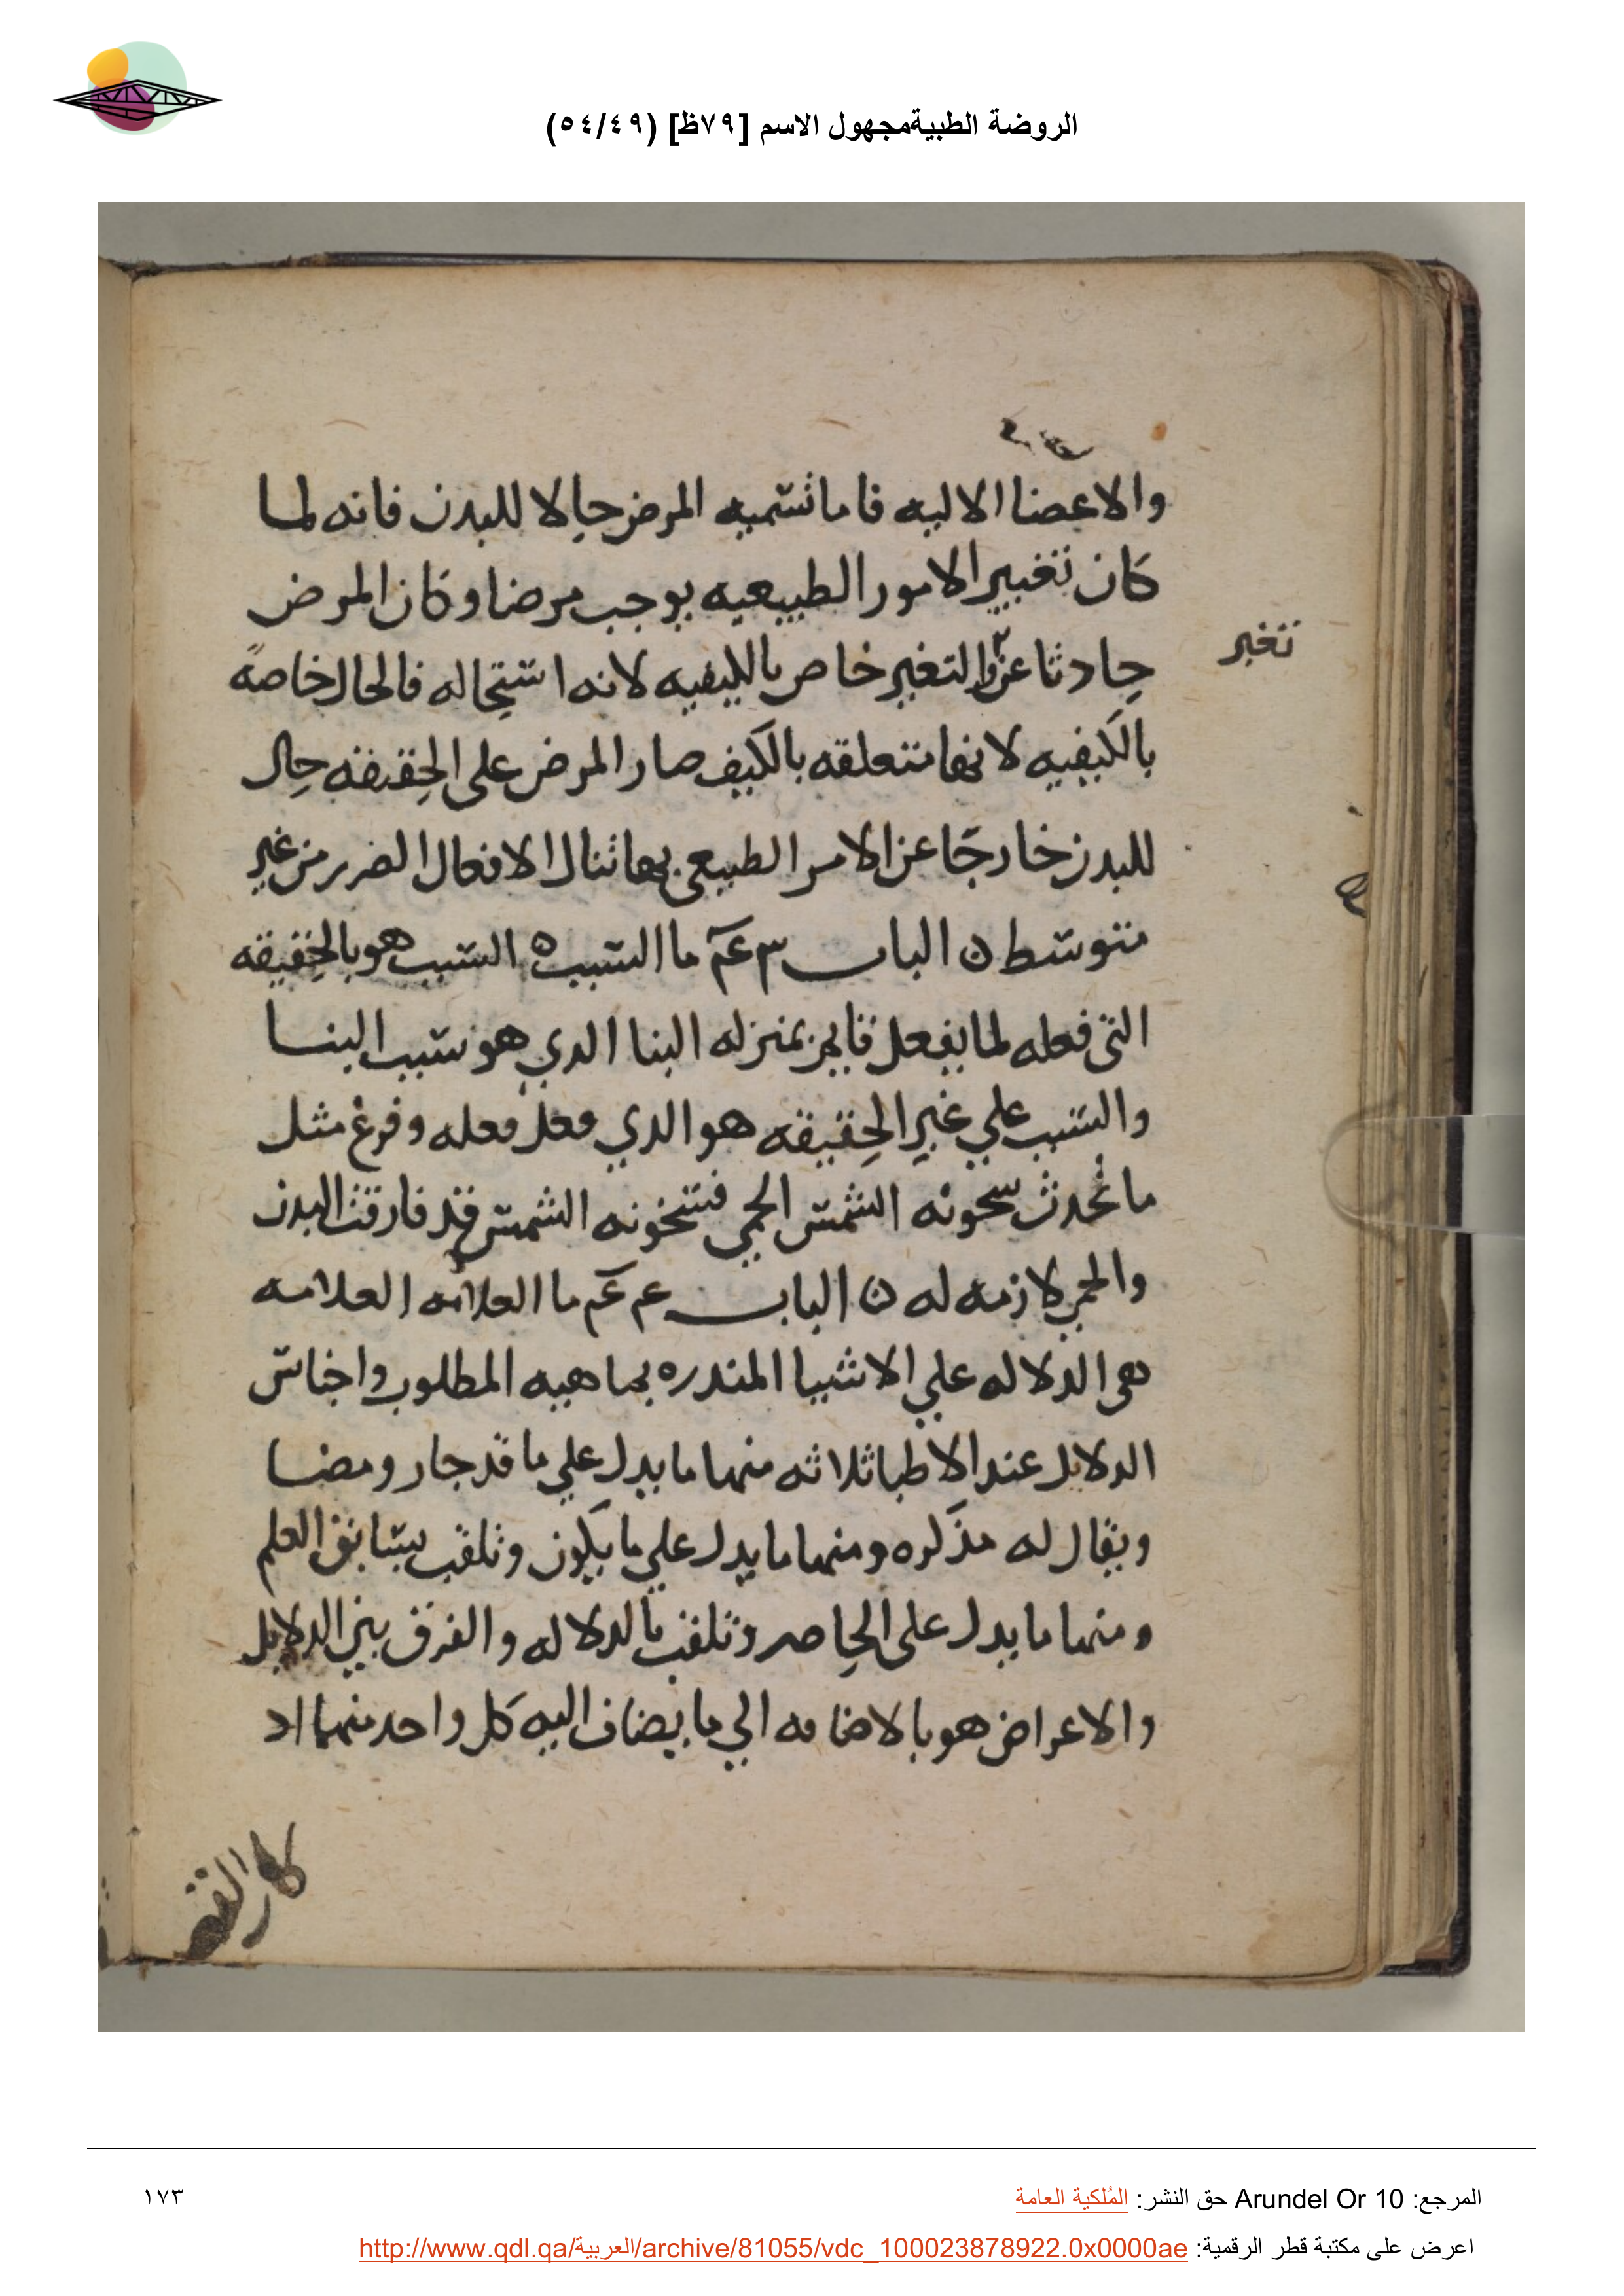 الروضة الطبيةمجهول الاسم [٧٩ظ] (٥٤/٤٩)
والاعضا الاليه فاما تسميه المرض حالا للبدن فانه لما
كان تغيير الامور الطبيعيه يوجب مرضا وكان المرض
تغير
حادثا عن والتغير خاص بالكيفيه لانه استحاله فالحال خاصة
بالكيفيه لانها متعلقه بالكيف صار المرض على الحقيقه حال
للبدن خارجا عن الامر الطبيعي بها تنال الافعال الضرر من غير
متوسط ن الباب ٣ عم ما السبب ه السبب هو بالحقيقه
التي فعله لما يفعل قايم بمنزله البنا الدي هو سبب البنا
والسبب علي غير الحقيقه هو الدي فعل فعله وفرغ مثل
ما تحدث سخونه الشمس الحمي فسخونه الشمس قد فارقت البدن
والحمي لازمه له ن الباب عم عم ما العلامه العلامه
هي الدلاله علي الاشيا المندره بماهيه المطلوب واجناس
الدلايل عند الاطبا ثلاثه منها ما يدل علي ما قد جار ومضا
ويقال له مذكره ومنها ما يدل علي ما يكون وتلقب بسابق العلم
ومنها ما يدل على الحاصر وتلقب بالدلاله والفرق بين الدلايل
والاعراض هو بالاضافه الي ما يضاف اليه كل واحد منهما اد
كان
المرجع: Arundel Or 10 حق النشر: المُلكية العامة
١٧٣
اعرض على مكتبة قطر الرقمية: http://www.qdl.qa/العربية/archive/81055/vdc_100023878922.0x0000ae